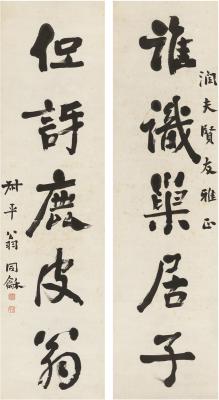 潤夫賢友雅正
誰識巢居子
但訝鹿皮翁
叔平翁同龢